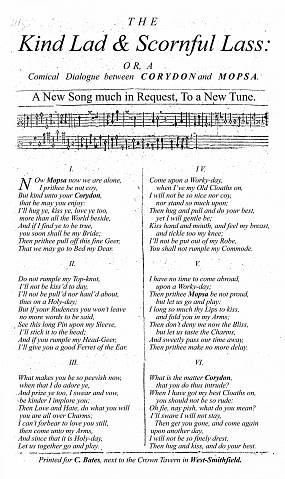 THE
Kind Lad & Scornful Lass:
OR, A
Comical Dialogue between CORYDON and MOPSA.
A New Song much in Request, To a New Tune.
I.
NOw Mopsa now we are alone,
I prithee be not coy,
But kind unto your Corydon,
that he may you enjoy:
I'll hug ye, kiss ye, love ye too,
more than all the World beside,
And if I find ye to be true,
you soon shall be my Bride;
Then prithee pull off this fine Geer,
That we may go to Bed my Dear.
II.
Do not rumple my Top-knot,
I'll not be kiss'd to day,
I'll not be pull'd nor haul'd about,
thus on a Holy-day;
But if your Rudeness you won't leave
no more words to be said,
See this long Pin upon my Sleeve,
I'll stick it to the head;
And if you rumple my Head-Geer,
I'll give you a good Ferret of the Ear.
III.
What makes you be so peevish now,
when that I do adore ye,
And prize ye too, I swear and vow,
be kinder I implore you;
Then Love and Hate, do what you will
you are all over Charms;
I can't forbear to love you still,
then come unto my Arms,
And since that it is Holy-day,
Let us together go and play.
IV.
Come upon a Worky-day,
when I've my Old Cloaths on,
I will not be so nice nor coy,
nor stand so much upon;
Then hug and pull and do your best,
yet I will gentle be;
Kiss hand and mouth, and feel my breast,
and tickle too my knee;
I'll not be put out of my Robe,
You shall not rumple my Commode.
V.
I have no time to come abroad,
upon a Worky-day;
Then prithee Mopsa be not proud,
but let us go and play;
I long so much thy Lips to kiss,
and fold you in my Arms;
Then don't deny me now the Bliss,
but let us taste the Charms,
And sweetly pass our time away,
Then prithee make no more delay.
VI.
What is the matter Corydon,
that you do thus intrude?
When I have got my best Cloaths on,
you should not be so rude:
Oh fie, nay pish, what do you mean?
I'll swear I will not stay,
Then get you gone, and come again
upon another day,
I will not be so finely drest,
Then hug and kiss, and do your best.
Printed for C. Bates, next to the Crown Tavern in West-Smithfield.